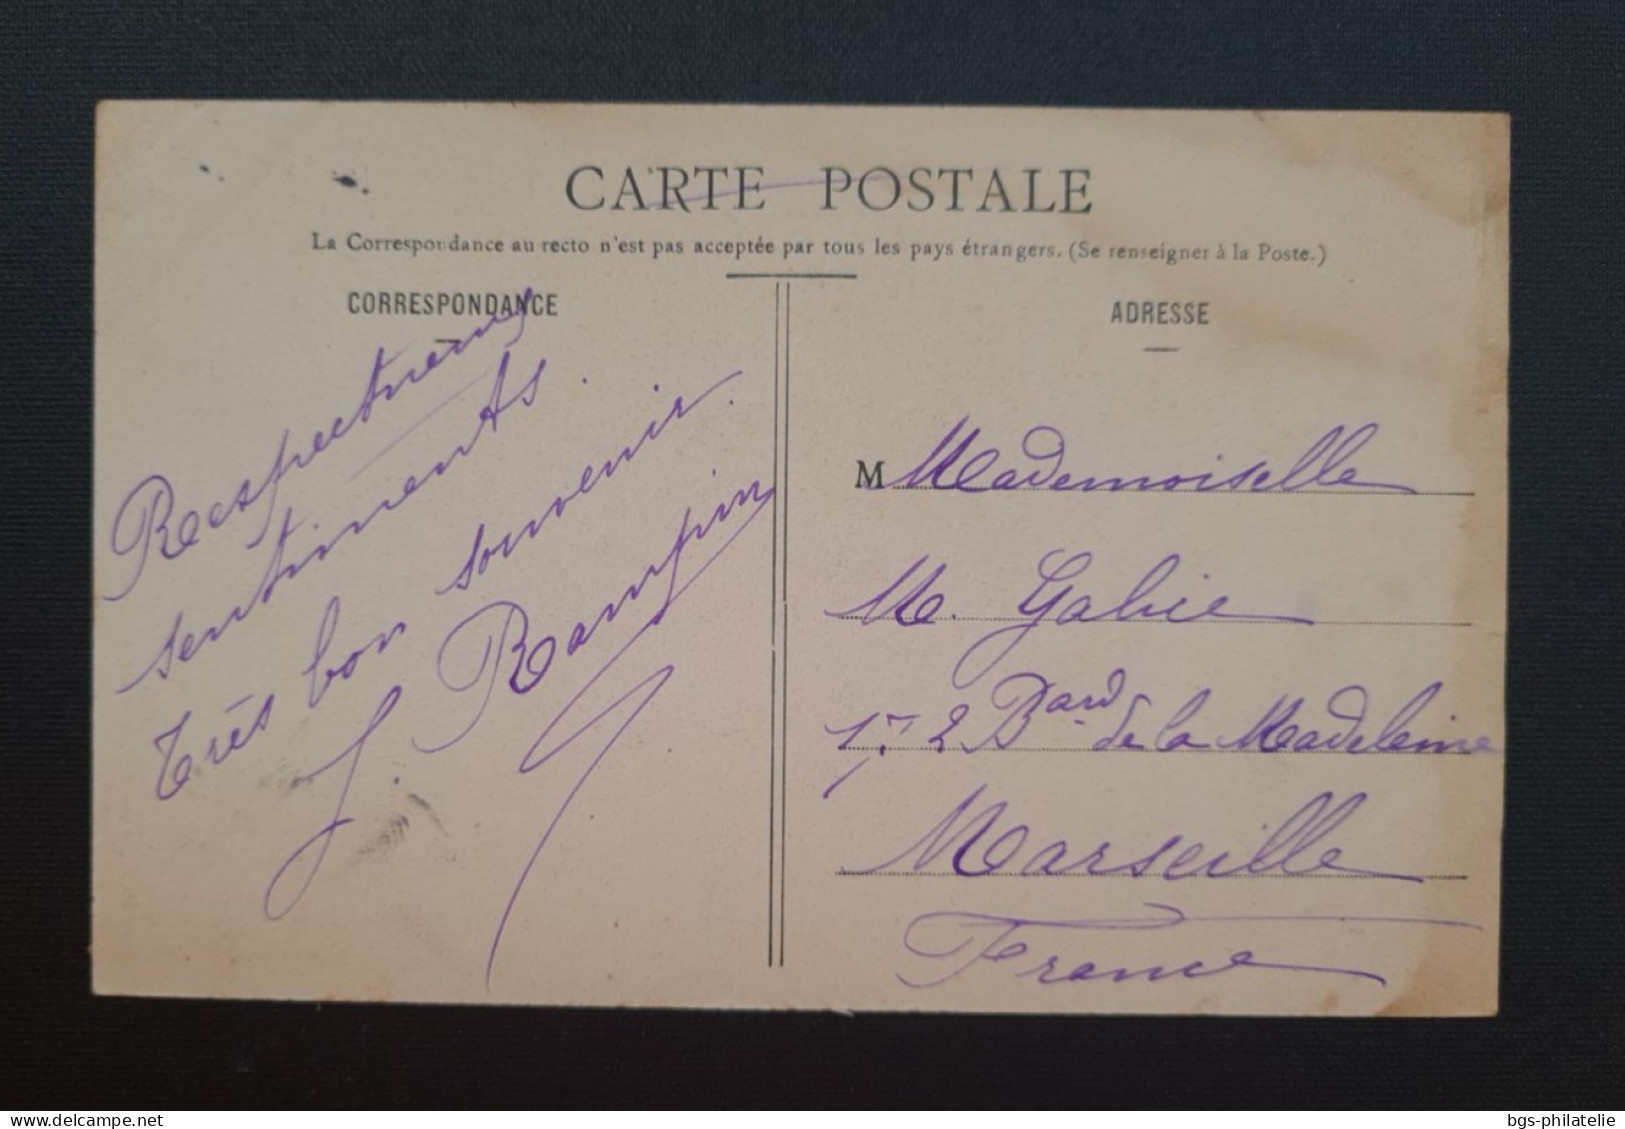 CARTE POSTALE
La Correspondance au recto n'est pas acceptée par tous les pays étrangers. (Se renseigner à la Poste.)
CORRESPONDANCE
Respectueux
sentiments.
Très bon souvenir.
J. Rampin
ADRESSE
M Mademoiselle
M. Gabie
172 Bard de la Madeleine
Marseille
France
www.delcampe.net
bgs-philatelie